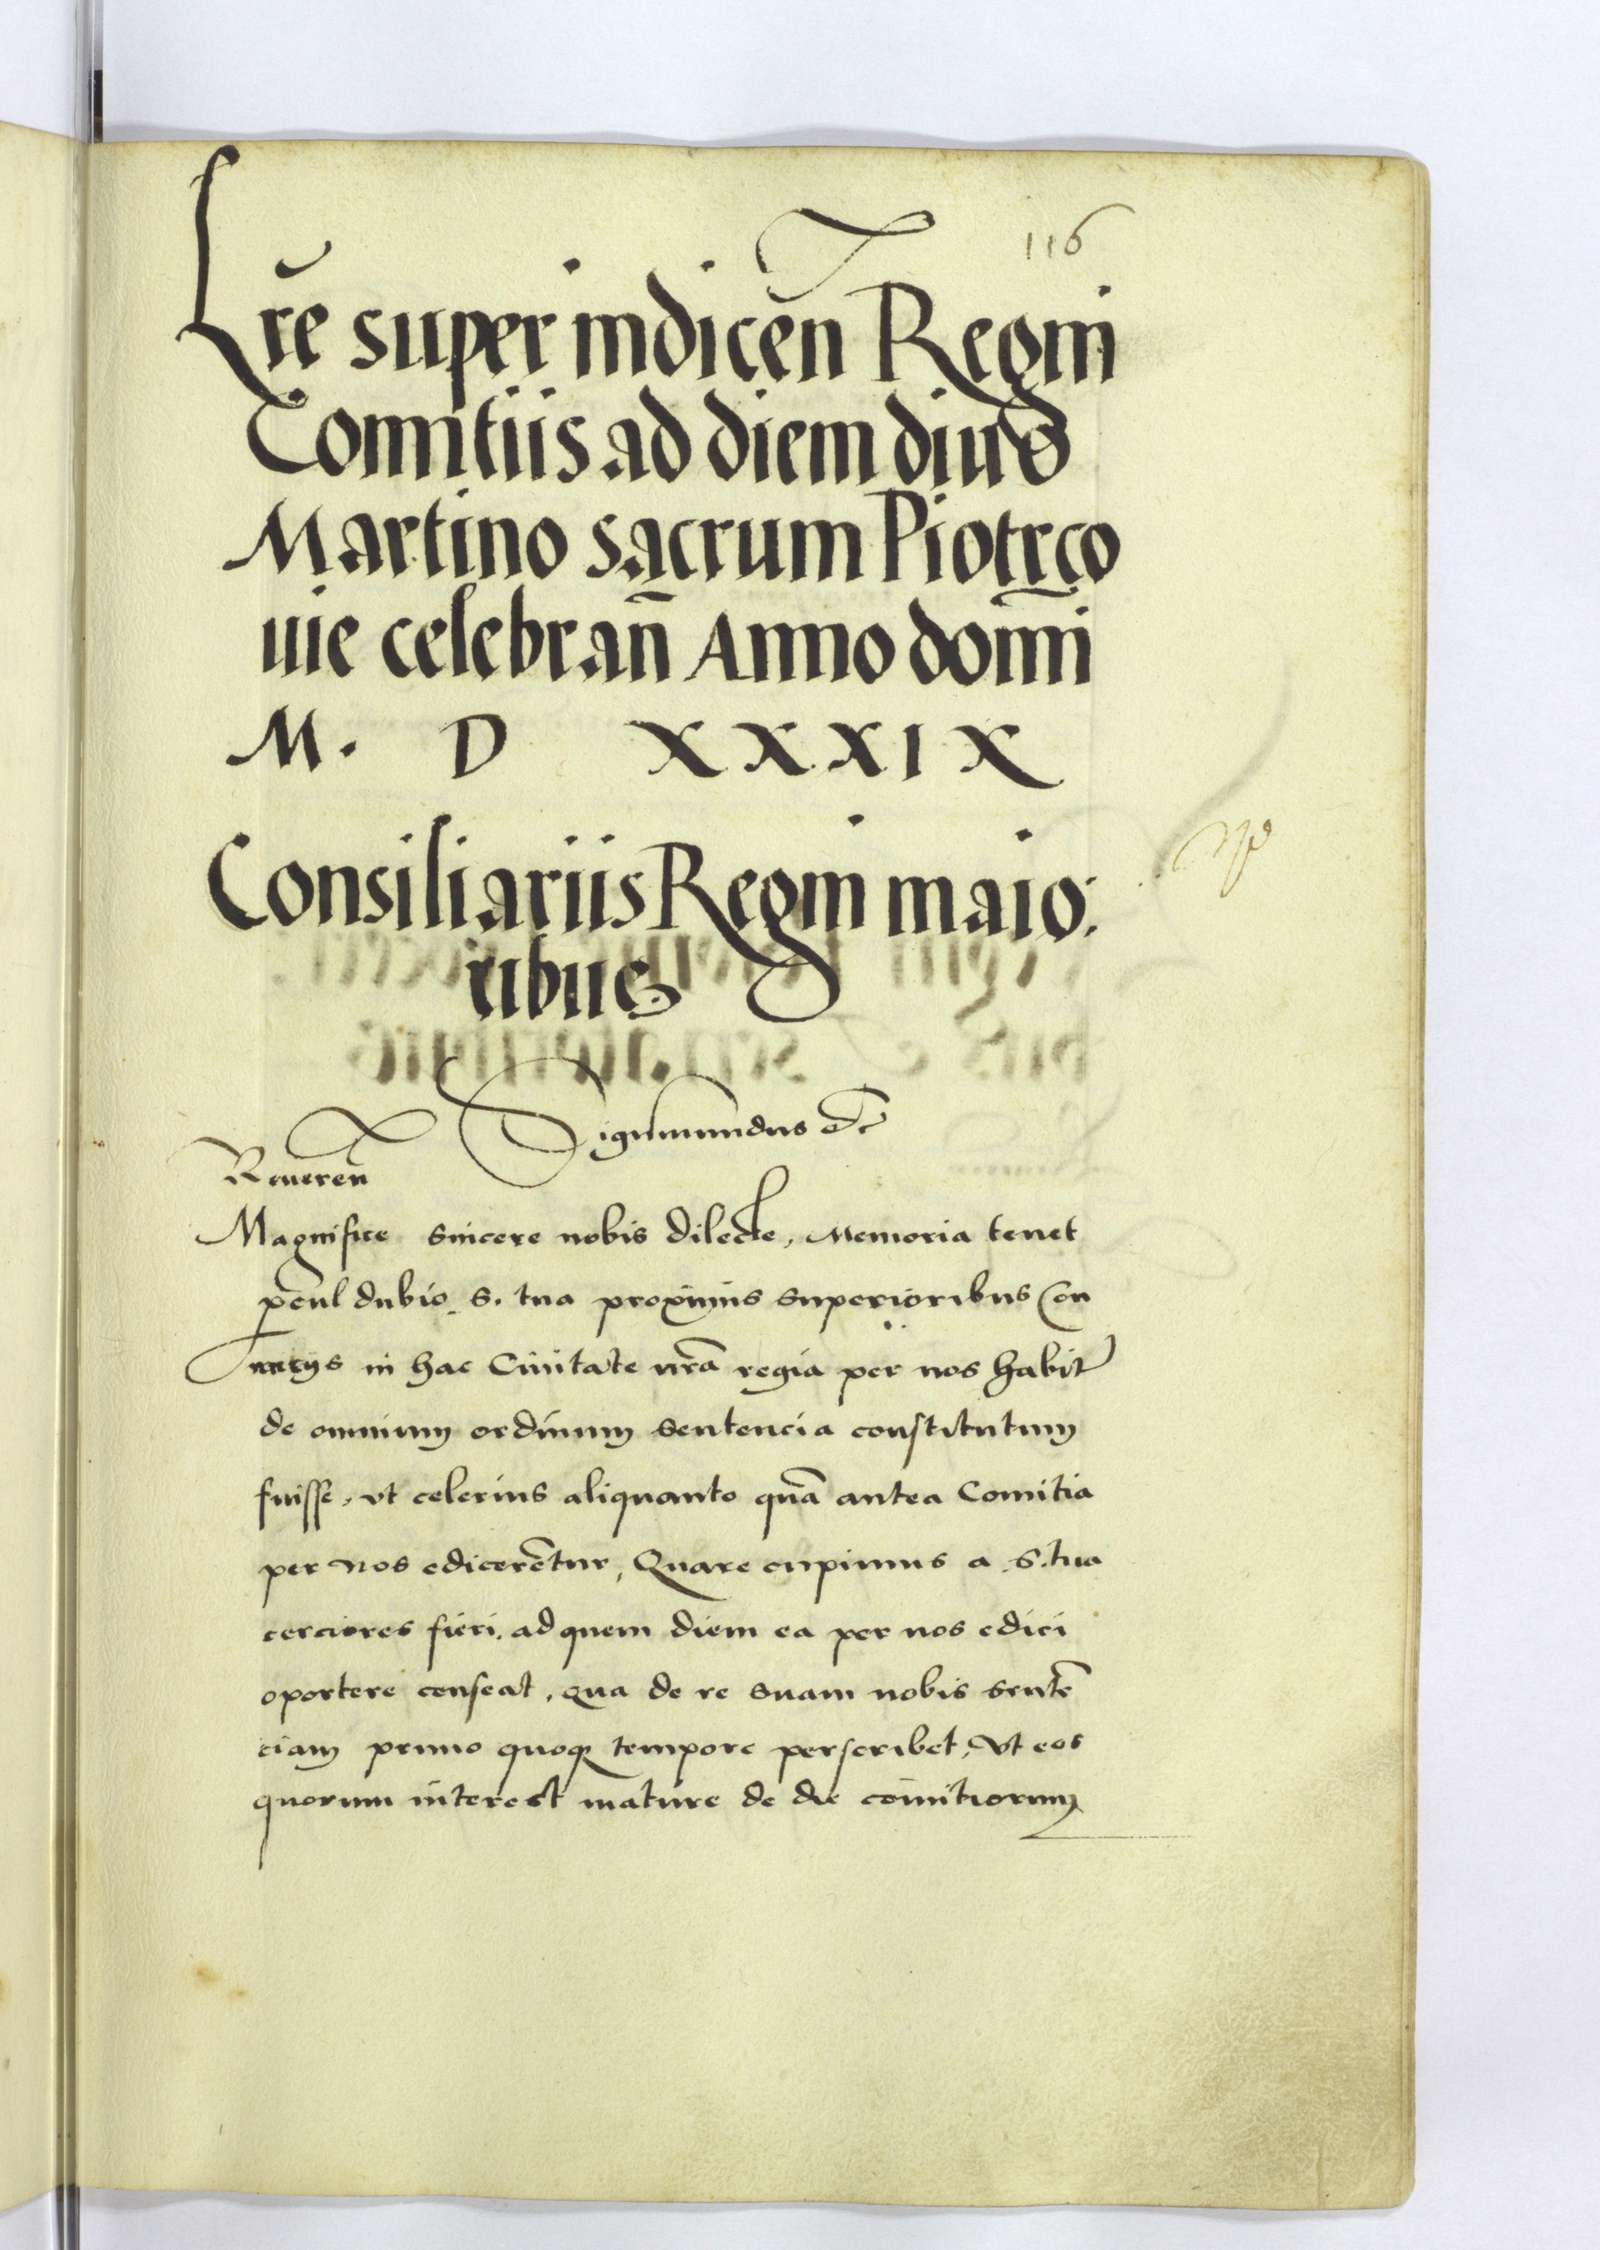 116
Lr̃e super indicen̄ Regni
Comitiis ad diem diuo
Martino sacrum Piotrco
uie celebran̄ Anno domi̅
M. D XXXIX
Consiliariis Regni maio:
ribus.
Sigismundus etc
Reueren̄
Magnifice sincere nobis dilecte, Memoria tenet
procul dubio S. tua proximis superioribus Con
uentus in hac Ciuitate nr̃a regia per nos habit
de omnium ordinum sentencia constitutum
fuisse, vt celerius aliquanto quã antea Comitia
per nos edicerẽtur, Quare cupimus a S. tua
cerciores fieri, ad quem diem ea per nos edici
oportere censeat, qua de re suam nobis sentẽ
ciam primo quoq tempore perscribet, Vt eos
quorum interest mature de die comitiorum